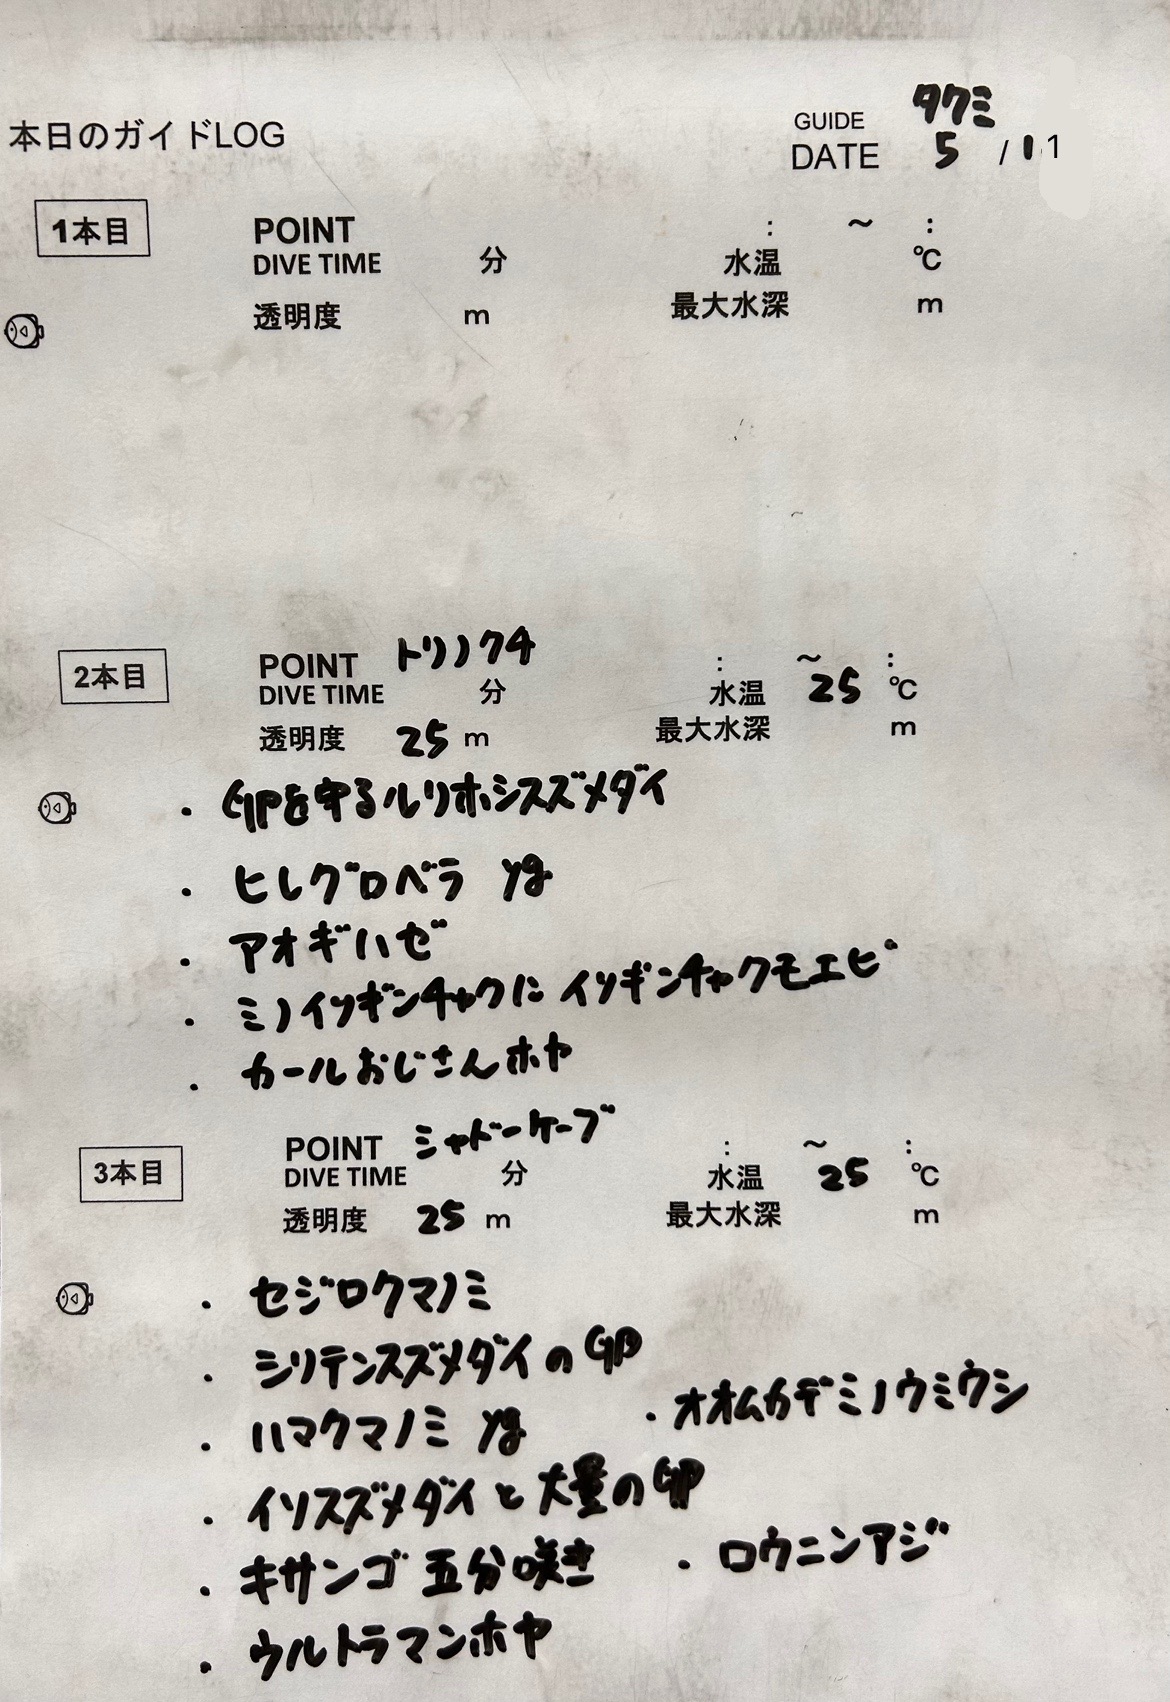 本日のガイドLOG
GUIDE タクミ
DATE 5 / 11
1本目
POINT : ～ :
DIVE TIME 分 水温 ℃
透明度 m 最大水深 m
2本目
POINT トリノクチ : ～ :
DIVE TIME 分 水温 25 ℃
透明度 25 m 最大水深 m
・卵を守るルリホシスズメダイ
・ヒレグロベラ yg
・アオギハゼ
・ミノイソギンチャクに イソギンチャクモエビ
・カールおじさんホヤ
3本目
POINT シャドーケーブ : ～ :
DIVE TIME 分 水温 25 ℃
透明度 25 m 最大水深 m
・セジロクマノミ
・シリテンスズメダイの卵
・ハマクマノミ yg ・オオムカデミノウミウシ
・イソスズメダイと大量の卵
・キサンゴ 五分咲き ・ロウニンアジ
・ウルトラマンホヤ